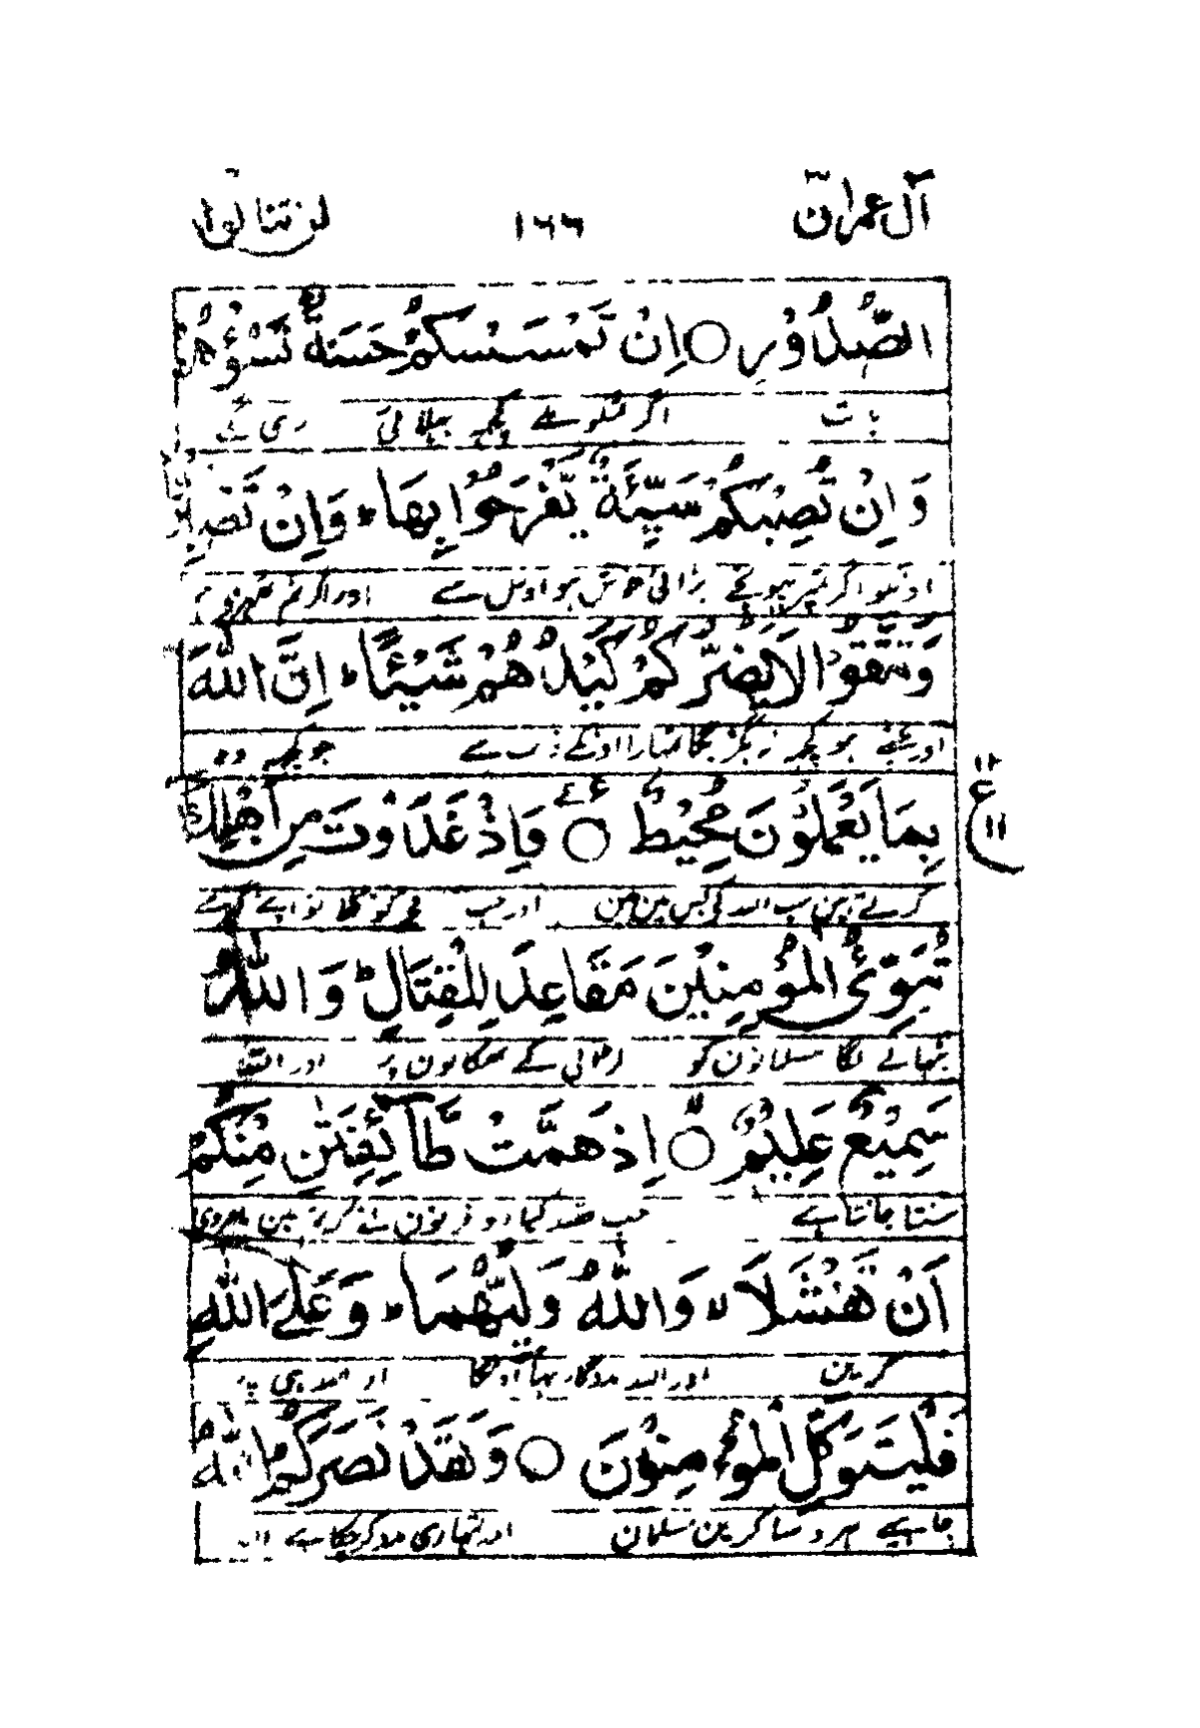 آل عمران ۳ ۱۶۶ لن تنالوا ۴
الصُّدُوْرِ ○ اِنْ تَمْسَسْكُمْ حَسَنَةٌ تَسُؤْهُمْ
بات اگر تمکو ملے کچھہ بھلائی بری لگے
وَاِنْ تُصِبْكُمْ سَيِّئَةٌ يَّفْرَحُوْا بِهَا ؕ وَاِنْ تَصْبِرُوْا
اونکو اگر تمپر پہونچے برائی خوش ہو اوس سے اور اگر تم ٹھہرے
وَتَتَّقُوْا لَا يَضُرُّكُمْ كَيْدُهُمْ شَيْـًٔا ؕ اِنَّ اللّٰهَ
اور بچتے ہو کچھہ نہ بگڑیگا تمہارا اونکے فریب سے جو کچھہ وہ
بِمَا يَعْمَلُوْنَ مُحِيْطٌ ○ وَاِذْ غَدَوْتَ مِنْ اَهْلِكَ
۱۲ ع ۱۱
کرتے ہین سب اللہ کی بس مین ہین اور جب فجر کو نکلا تو اپنے گھر سے
تُبَوِّئُ الْمُؤْمِنِيْنَ مَقَاعِدَ لِلْقِتَالِ ؕ وَاللّٰهُ
بٹھانے لگا مسلمانون کو لڑائی کے ٹھکانون پر اور اللہ
سَمِيْعٌ عَلِيْمٌ ○ اِذْ هَمَّتْ طَّآئِفَتٰنِ مِنْكُمْ
سنتا جانتا ہے جب قصد کیا دو فرقون نے تم مین نامردی
اَنْ تَفْشَلَا ۙ وَاللّٰهُ وَلِيُّهُمَا ؕ وَعَلَى اللّٰهِ
کرین اور اللہ مددگار تھا اونکا اور اللہ ہی پر
فَلْيَتَوَكَّلِ الْمُؤْمِنُوْنَ ○ وَلَقَدْ نَصَرَكُمُ اللّٰهُ
چاہیے بھروسا کرین مسلمان اور تمہاری مدد کر چکا ہے اللہ